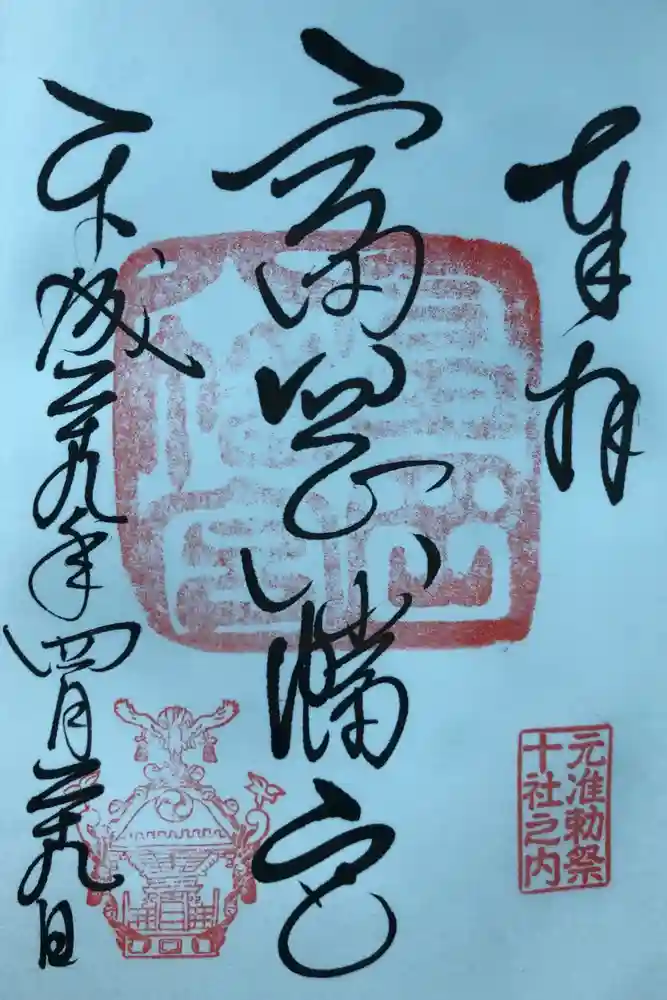 奉拝
富岡八幡宮
平成二十九年四月二十九日
元准勅祭
十社之内